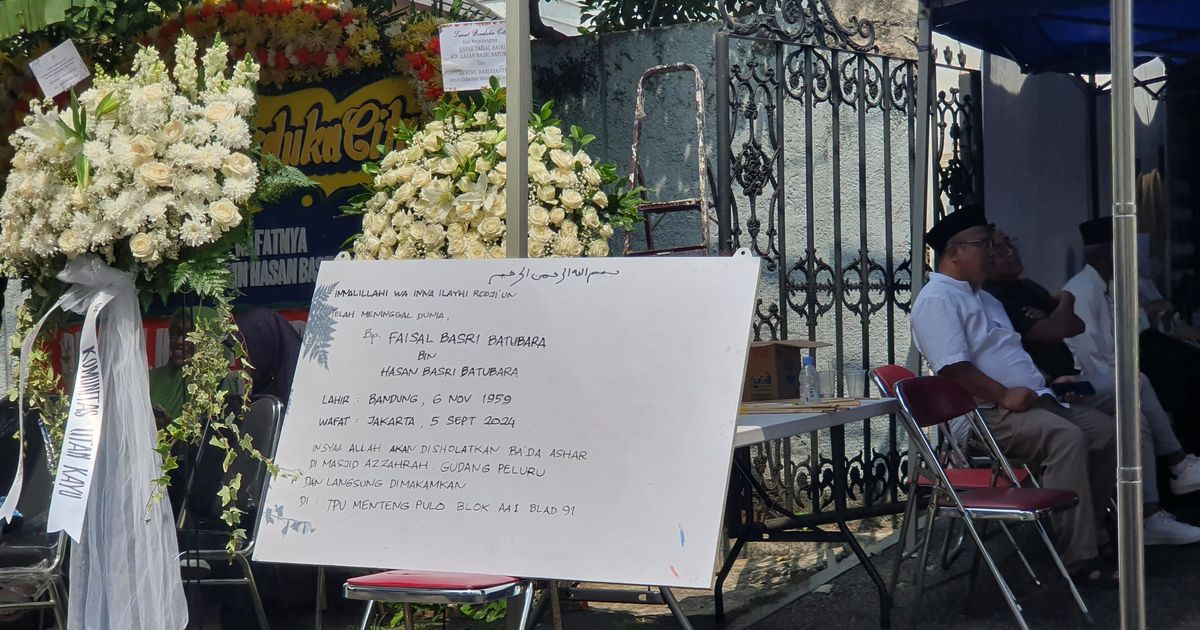 Turut Berduka Cita
BAPAK FAISAL BASRI
BIN HASAN BASRI BATUBARA
Dari
DESTRY DAMAYANTI
erduka Cita
FATNYA
BIN HASAN BAS
KOMUNITAS UTAN KAYU
بسم الله الرحمن الرحيم
INNALILLAHI WA INNA ILAYHI RODJI'UN
TELAH MENINGGAL DUNIA,
Bp. FAISAL BASRI BATUBARA
BIN
HASAN BASRI BATUBARA
LAHIR : BANDUNG, 6 NOV 1959
WAFAT : JAKARTA, 5 SEPT 2024
INSYAA ALLAH AKAN DISHOLATKAN BA'DA ASHAR
DI MASJID AZZAHRAH. GUDANG PELURU
DAN LANGSUNG DIMAKAMKAN
DI : TPU MENTENG PULO BLOK AAI BLAD 91